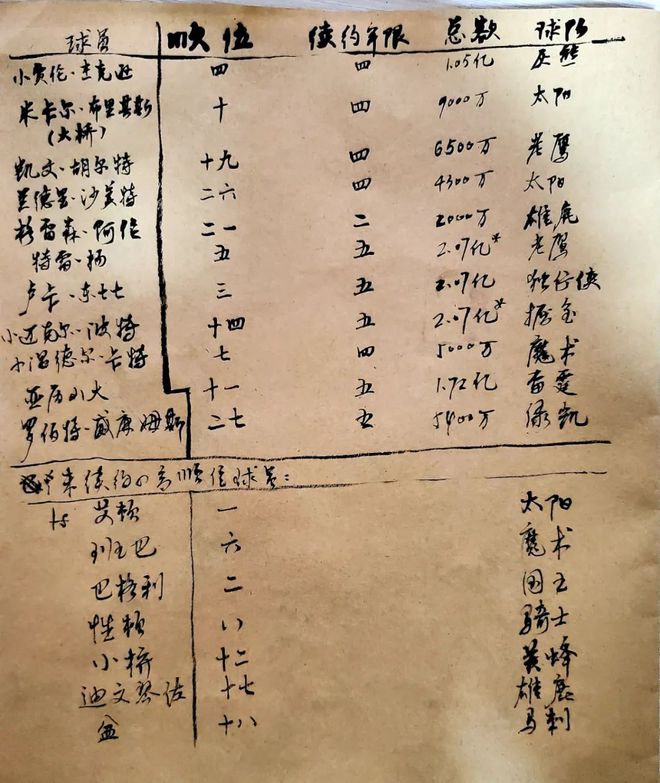 球员 顺位 续约年限 总数 球队
小贾伦·杰克逊 四 四 1.05亿 灰熊
米卡尔·布里奇斯 十 四 9000万 太阳
(大桥)
凯文·胡尔特 十九 四 6500万 老鹰
兰德里·沙梅特 二六 四 4300万 太阳
格雷森·阿伦 二一 二 2000万 雄鹿
特雷·杨 五 五 2.07亿* 老鹰
卢卡·东七七 三 五 2.07亿 独行侠
小迈克尔·波特 十四 五 2.07亿* 掘金
小温德尔·卡特 七 四 5000万 魔术
亚历山大 十一 五 1.72亿 雷霆
罗伯特·威廉姆斯 二七 五 5400万 绿凯
未续约的高顺位球员:
艾顿 一 太阳
班巴 六 魔术
巴格利 二 国王
性顿 八 骑士
小桥 十二 黄蜂
迪文琴佐 十七 雄鹿
十八 马刺